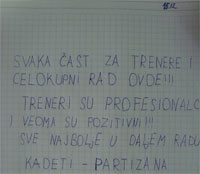 SVAKA ČAST ZA TRENERE I
CELOKUPNI RAD OVDE!!!
TRENERI SU PROFESIONALC
I VEOMA SU POZITIVNI!!!
SVE NAJBOLJE U DALJEM RADU
KADETI - PARTIZANA